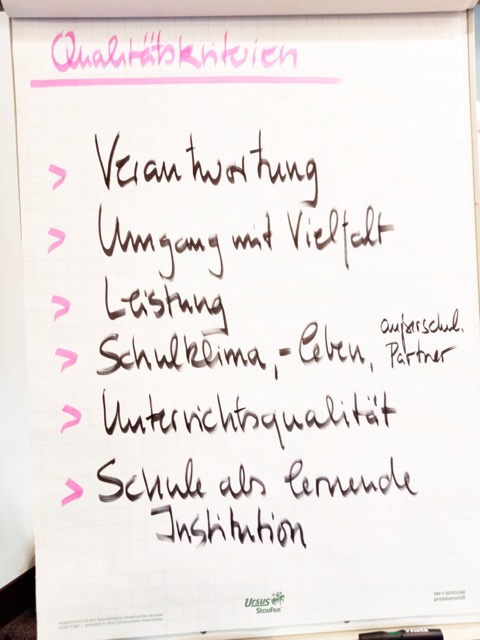 Qualitätskriterien
> Verantwortung
> Umgang mit Vielfalt
> Leistung
> Schulklima, -leben, außerschul. Partner
> Unterrichtsqualität
> Schule als lernende
Institution
Ursus
Staufen